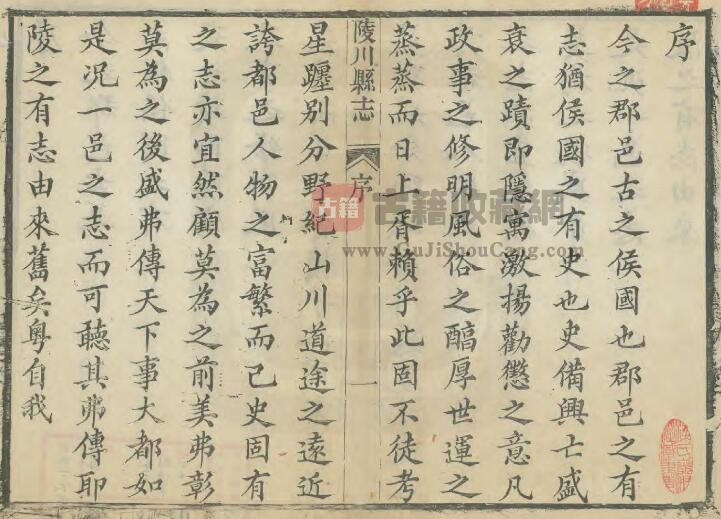 序
今之郡邑古之侯國也郡邑之有
志猶侯國之有史也史備興亡盛
衰之蹟即隱寓激揚勸懲之意凡
政事之修明風俗之醕厚世運之
蒸蒸而日上胥賴乎此固不徒考
陵川縣志 序 一
星躔别分野紀山川道途之遠近
誇都邑人物之富繁而已史固有
之志亦宜然顧莫為之前美弗彰
莫為之後盛弗傳天下事大都如
是况一邑之志而可聽其弗傳耶
陵之有志由來舊矣粤自我
古籍 古籍收藏網
www.GuJiShouCang.com